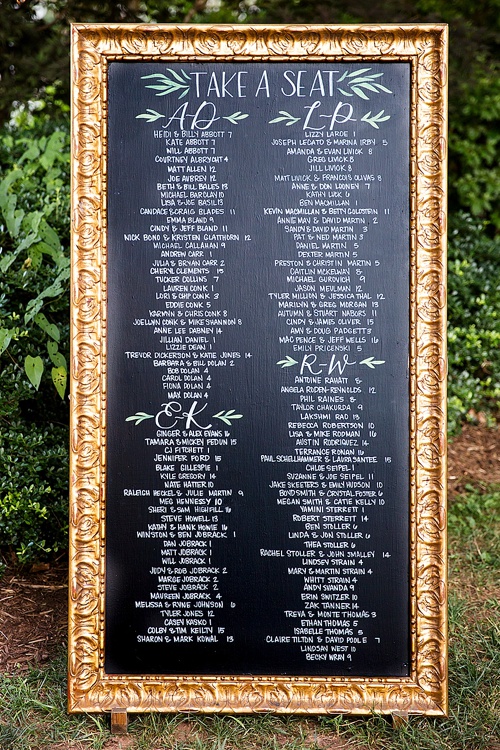 TAKE A SEAT
A-D
HEIDI & BILLY ABBOTT 7
KATE ABBOTT 7
WILL ABBOTT 7
COURTNEY ALBRYCHT 4
MATT ALLEN 12
JOE AUBREY 12
BETH & BILL BALES 13
MICHAEL BARCLAY 10
LISA & JOE BASIL 13
CANDACE & CRAIG BLADES 11
EMMA BLAND 9
CINDY & JEFF BLAND 11
NICK BOND & KRISTEN GLATTHORN 12
MICHAEL CALLAHAN 9
ANDREW CARR 1
JULIA & BRYAN CARR 2
CHERYL CLEMENTS 15
TUCKER COLLINS 7
LAUREN CONK 1
LORI & CHIP CONK 3
EDDIE CONK 5
KARWYN & CHRIS COOK 8
JOELLWN COWK & MIKE SHANNON 8
ANNE LEE DABNEY 14
JILLIAN DANIEL 1
LIZZIE DEAN 1
TREVOR DICKERSON & KATIE JONES 14
BARBARA & BILL DOLAN 2
BOB DOLAN 4
CAROL DOLAN 4
FIONA DOLAN 4
MAX DOLAN 4
E-K
GINGER & ALEX EVANS 16
TAMARA & MICKEY FEDUN 15
CJ FITCHETT 1
JENNIFER FORD 15
BLAKE GILLESPIE 1
KYLE GREGORY 14
NATE HATTER 10
RALEIGH HECKEL & JULIE MARTIN 9
MEG HENNESSY 10
SHERI & SAM HIGHFILL 16
STEVE HOWELL 13
KATHY & HANK HOWIE 16
WINSTON & BEN JOBRACK 1
DAN JOBRACK 1
MATT JOBRACK 1
WILL JOBRACK 1
JUDY & ROB JOBRACK 2
MARGE JOBRACK 2
STEVE JOBRACK 2
MAUREEN JOBRACK 4
MELISSA & RYNE JOHNSON 6
TYLER JONES 12
CASEY KASKO 1
COLBY & TIM KEILTY 15
SHARON & MARK KOWAL 13
L-P
LIZZY LAROE 1
JOSEPH LECATO & MARINA IRBY 5
AMANDA & EVAN LIVIOK 8
GREG LIVIOK 8
JILL LIVIOK 8
MATT LIVIOK & FRANCOIS OLIVAS 8
ANNE & DON LOONEY 7
KATHY LUCK 6
BEN MACMILLAN 1
KEVIN MACMILLAN & BETTY GOLDSTEIN 11
ANNIE MAY & DAVID MARTIN 2
SANDY & DAVID MARTIN 3
PAT & NED MARTIN 3
DANIEL MARTIN 5
DEXTER MARTIN 5
PRESTON & CHRISTIN MARTIN 5
CAITLIN MCKELWAY 8
MICHAEL GUROVICH 9
JASON MEULMAN 12
TYLER MILLION & JESSICA THAL 12
MARILYN & GREG MORGAN 13
AUTUMN & STUART NABORS 11
CINDY & JAMES OLIVER 15
AMY & DOUG PADGETT 3
MAC PENCE & JEFF WELLS 16
EMILY PRICENSKI 5
R-W
ANTOINE RAHATT 8
ANGELA RODEN-REYNOLDS 12
PHIL RAINES 8
TAYLOR CHAKURDA 9
LAKSHMI RAO 13
REBECCA ROBERTSON 10
LISA & MIKE RODMAN 16
AUSTIN RODRIQUEZ 14
TERRANCE RONAN 16
PAUL SCHELLHAMMER & LAURA SANTEE 15
CHLOE SEIPEL 1
SUZANNE & JOE SEIPEL 11
JAKE SKEETERS & EMILY HUDSON 10
BOYD SMITH & CRYSTAL FOSTER 6
MEGAN SMITH & CATIE KELLY 10
YAMINI STERRETT 1
ROBERT STERRETT 14
BEN STOLLER 6
LINDA & JON STOLLER 6
THEA STOLLER 6
RACHEL STOLLER & JOHN SMALLEY 14
LINDSEY STRAIN 4
MARY & MARTIN STRAIN 4
WHITT STRAIN 4
ANDY SWANDA 9
ERIN SWITZER 10
ZAK TANNER 14
TREVA & MONTE THOMAS 3
ETHAN THOMAS 5
ISABELLE THOMAS 5
CLAIRE TILTON & DAVID POOLE 7
LINDSAY WEST 10
BECKY WRAY 9